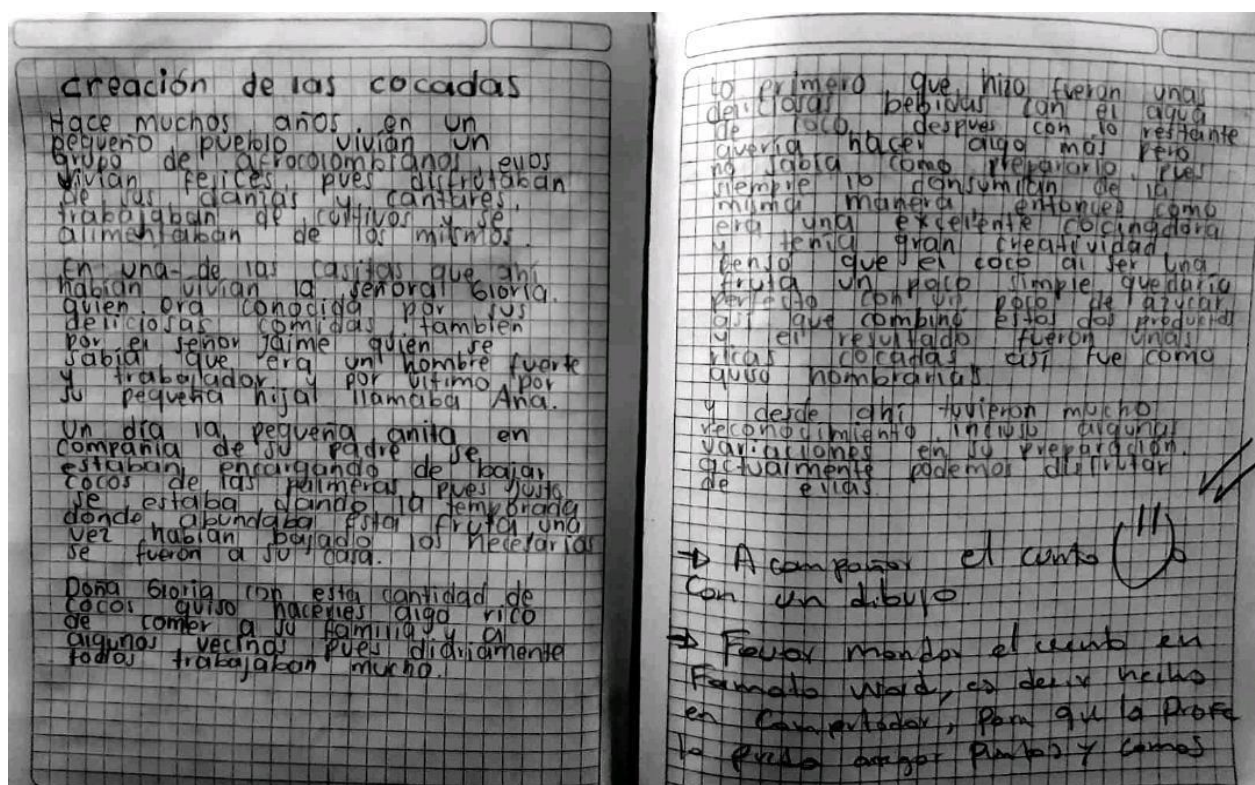 creación de las cocadas
Hace muchos años, en un
pequeño pueblo vivían un
grupo de afrocolombianos, ellos
vivían felices, pues disfrutaban
de sus danzas y cantares,
trabajaban de cultivos y se
alimentaban de los mismos.
En una de las casitas que ahí
habían vivían la señora Gloria.
quien era conocida por sus
deliciosas comidas, tambien
por el señor Jaime quien se
sabía que era un hombre fuerte
y trabajador y por ultimo por
su pequeña hija llamaba Ana.
Un día la pequeña anita en
compañia de su padre se
estaban encargando de bajar
cocos de las palmeras, pues justo
se estaba dando la temporada
donde abundaba esta fruta, una
vez habían bajado los necesarias
se fueron a su casa.
Doña Gloria con esta cantidad de
cocos quiso hacerles algo rico
de comer a su familia y a
algunos vecinos pues diariamente
todos trabajaban mucho.
Lo primero que hizo fueron unas
deliciosas bebidas con el agua
de coco, despues con lo restante
quería hacer algo mas pero
no sabía como prepararlo, pues
siempre lo consumían de la
misma manera, entonces como
era una excelente cocinadora
y tenia gran creatividad
penso que el coco al ser una
fruta un poco simple quedaria
perfecto con un poco de azucar
así que combinó estos dos productos
y el resultado fueron unas
ricas cocadas así fue como
quiso nombrarlas.
y desde ahí tuvieron mucho
reconocimiento incluso algunas
variaciones en su preparación.
actualmente podemos disfrutar
de ellas.
→ Acompañar el cunto
con un dibujo
→ Favor mandar el cuento en
Formato Word, es decir hecho
en Computador, para que la Profe
lo pueda puntos y comas